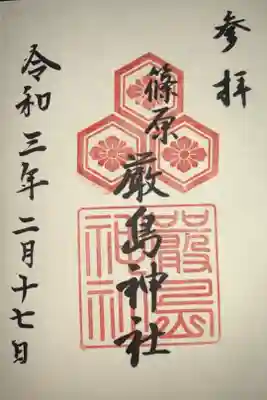 参拝
篠原
厳島神社
令和三年二月十七日
嚴島
神社